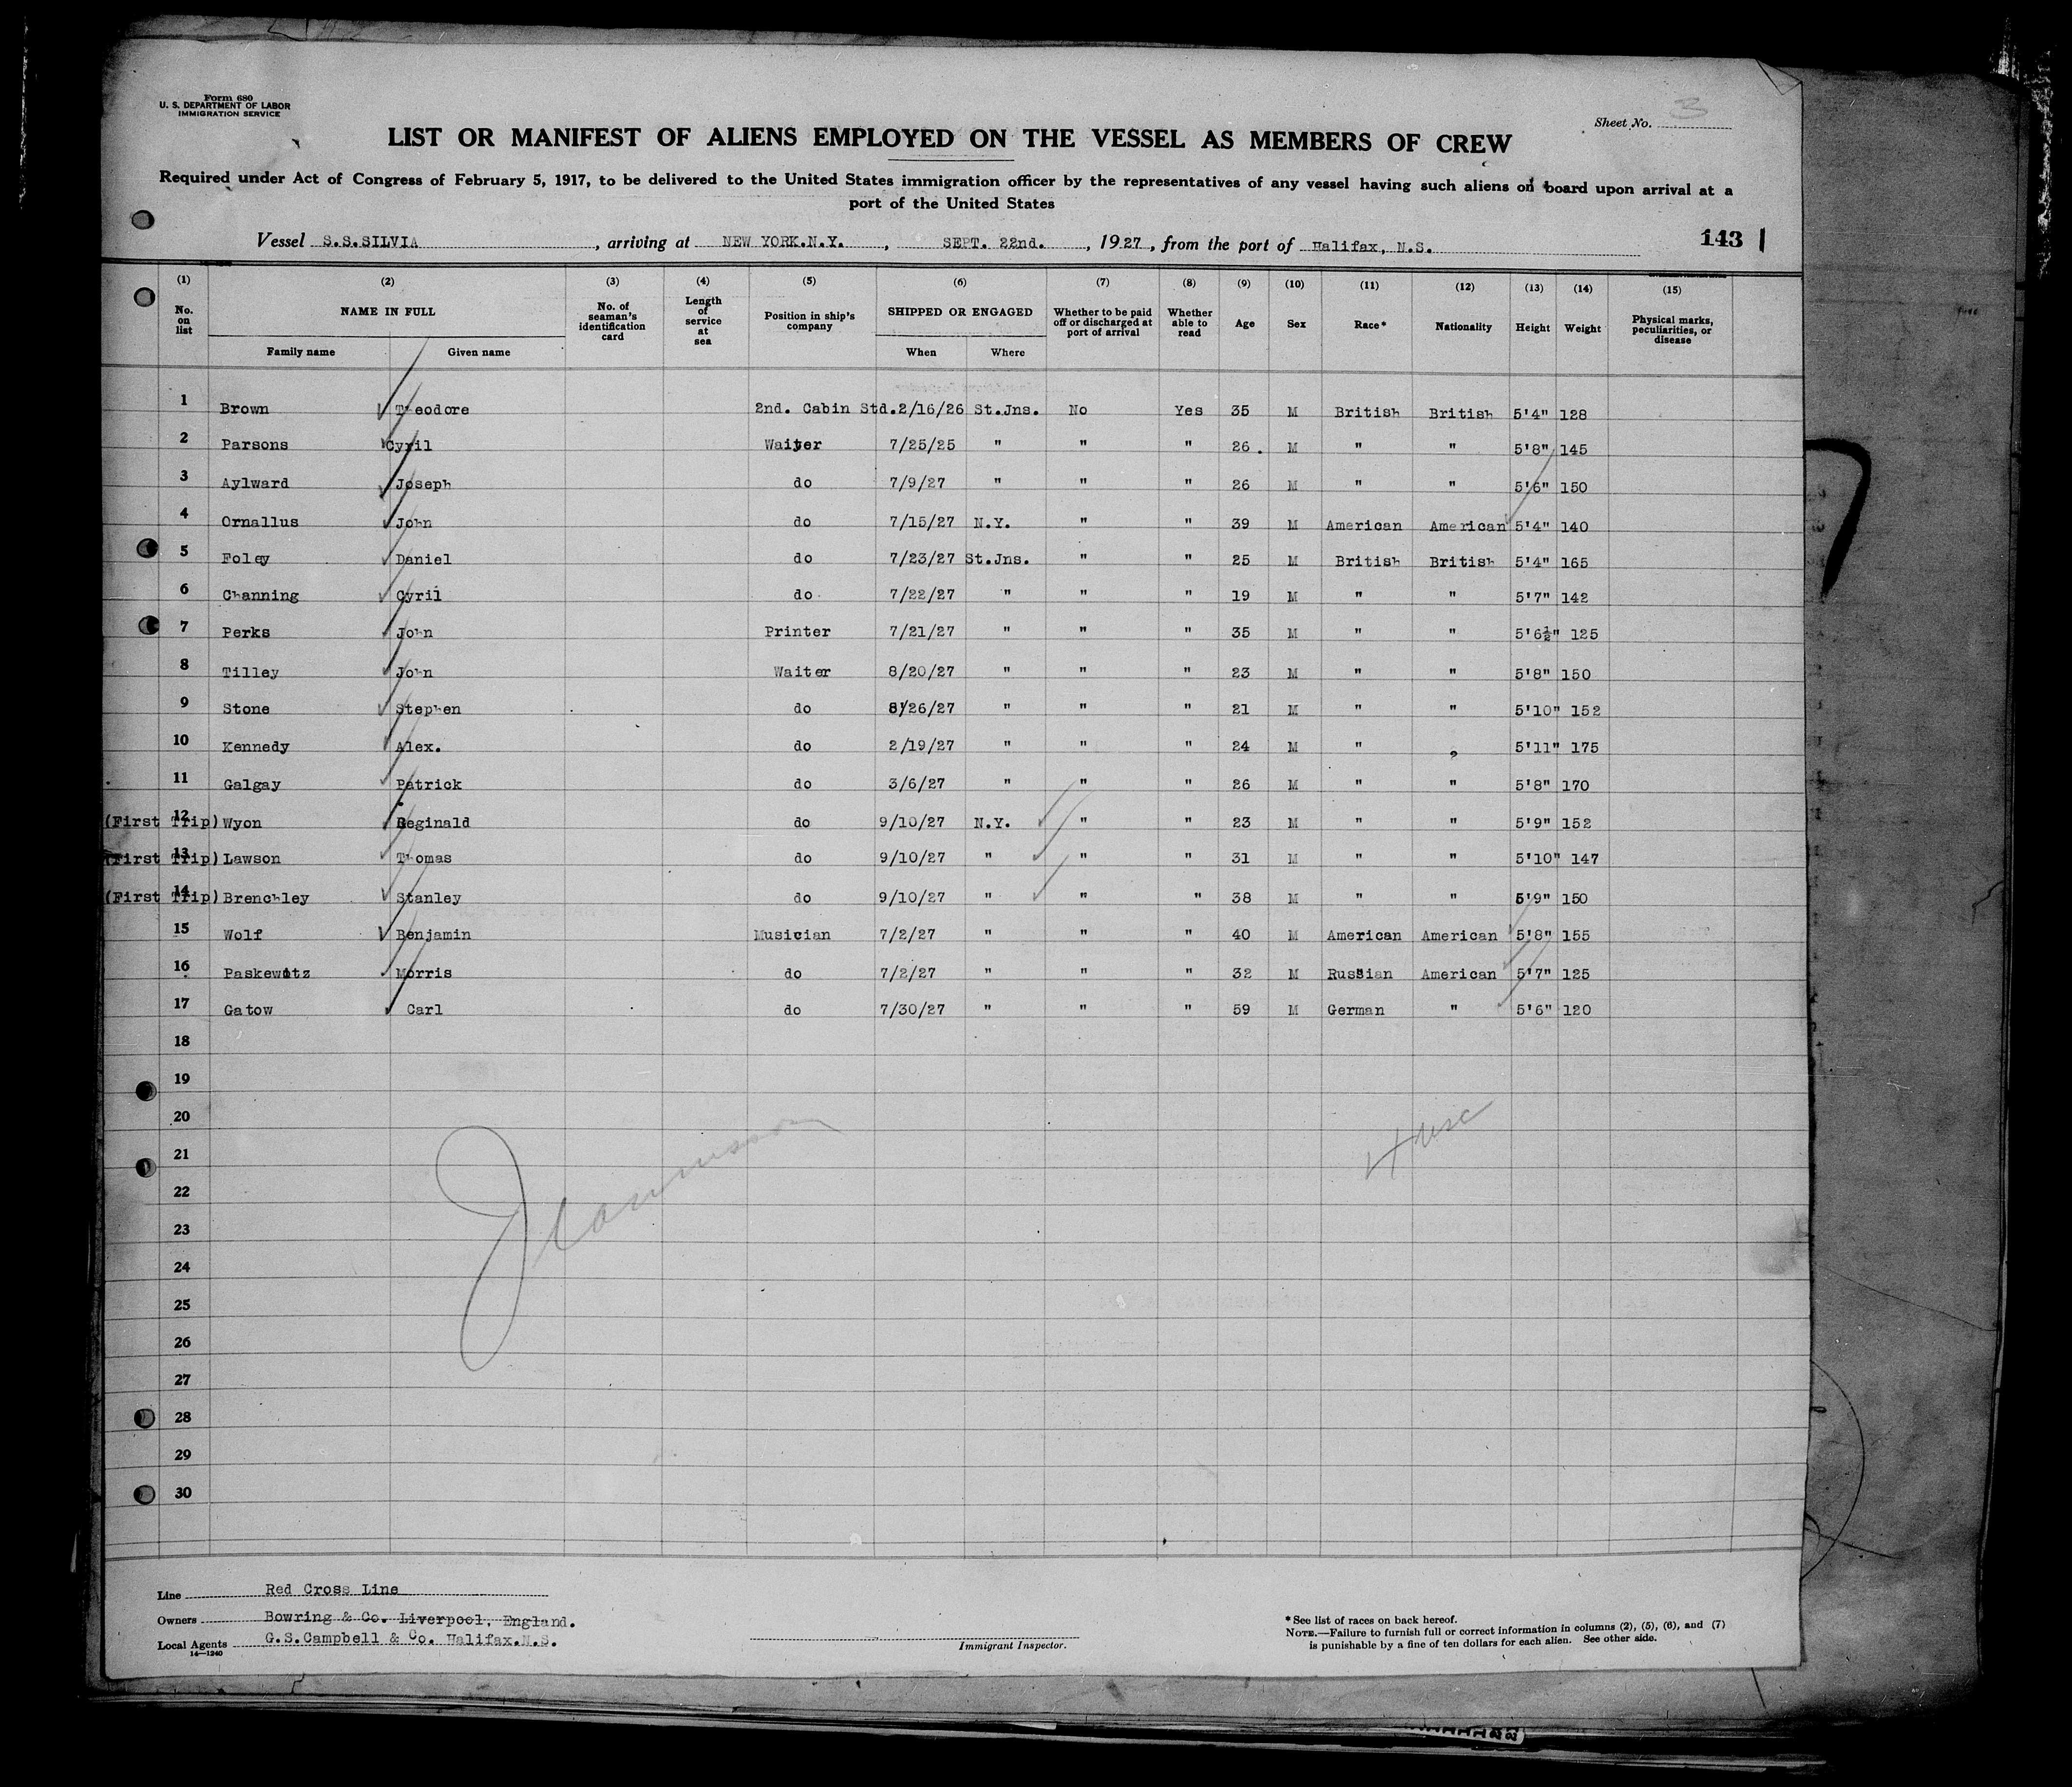 Form 680
U. S. DEPARTMENT OF LABOR
IMMIGRATION SERVICE
Sheet No. 3
LIST OR MANIFEST OF ALIENS EMPLOYED ON THE VESSEL AS MEMBERS OF CREW
Required under Act of Congress of February 5, 1917, to be delivered to the United States immigration officer by the representatives of any vessel having such aliens on board upon arrival at a
port of the United States
Vessel S.S.SILVIA, arriving at NEW YORK.N.Y., SEPT. 22nd., 1927, from the port of Halifax, N.S. 143
(1) (2) (3) (4) (5) (6) (7) (8) (9) (10) (11) (12) (13) (14) (15)
No. on list NAME IN FULL No. of seaman's identification card Length of service at sea Position in ship's company SHIPPED OR ENGAGED Whether to be paid off or discharged at port of arrival Whether able to read Age Sex Race* Nationality Height Weight Physical marks, peculiarities, or disease
Family name Given name When Where
1 Brown Theodore 2nd. Cabin Std. 2/16/26 St.Jns. No Yes 35 M British British 5'4" 128
2 Parsons Cyril Waiter 7/25/25 " " " 26 . M " " 5'8" 145
3 Aylward Joseph do 7/9/27 " " " 26 M " " 5'6" 150
4 Ornallus John do 7/15/27 N.Y. " " 39 M American American 5'4" 140
5 Foley Daniel do 7/23/27 St.Jns. " " 25 M British British 5'4" 165
6 Channing Cyril do 7/22/27 " " " 19 M " " 5'7" 142
7 Perks John Printer 7/21/27 " " " 35 M " " 5'6½" 125
8 Tilley John Waiter 8/20/27 " " " 23 M " " 5'8" 150
9 Stone Stephen do 8/26/27 " " " 21 M " " 5'10" 152
10 Kennedy Alex. do 2/19/27 " " " 24 M " " 5'11" 175
11 Galgay Patrick do 3/6/27 " " " 26 M " " 5'8" 170
(First Trip) 12 Wyon Reginald do 9/10/27 N.Y. " " 23 M " " 5'9" 152
(First Trip) 13 Lawson Thomas do 9/10/27 " " " 31 M " " 5'10" 147
(First Trip) 14 Brenchley Stanley do 9/10/27 " " " 38 M " " 5'9" 150
15 Wolf Benjamin Musician 7/2/27 " " " 40 M American American 5'8" 155
16 Paskewitz Morris do 7/2/27 " " " 32 M Russian American 5'7" 125
17 Gatow Carl do 7/30/27 " " " 59 M German " 5'6" 120
18
19
20
21
22
23
24
25
26
27
28
29
30
Line Red Cross Line
Owners Bowring & Co. Liverpool, England.
Local Agents G.S.Campbell & Co. Halifax.N.S.
14—1240
Immigrant Inspector.
*See list of races on back hereof.
NOTE.—Failure to furnish full or correct information in columns (2), (5), (6), and (7)
is punishable by a fine of ten dollars for each alien. See other side.